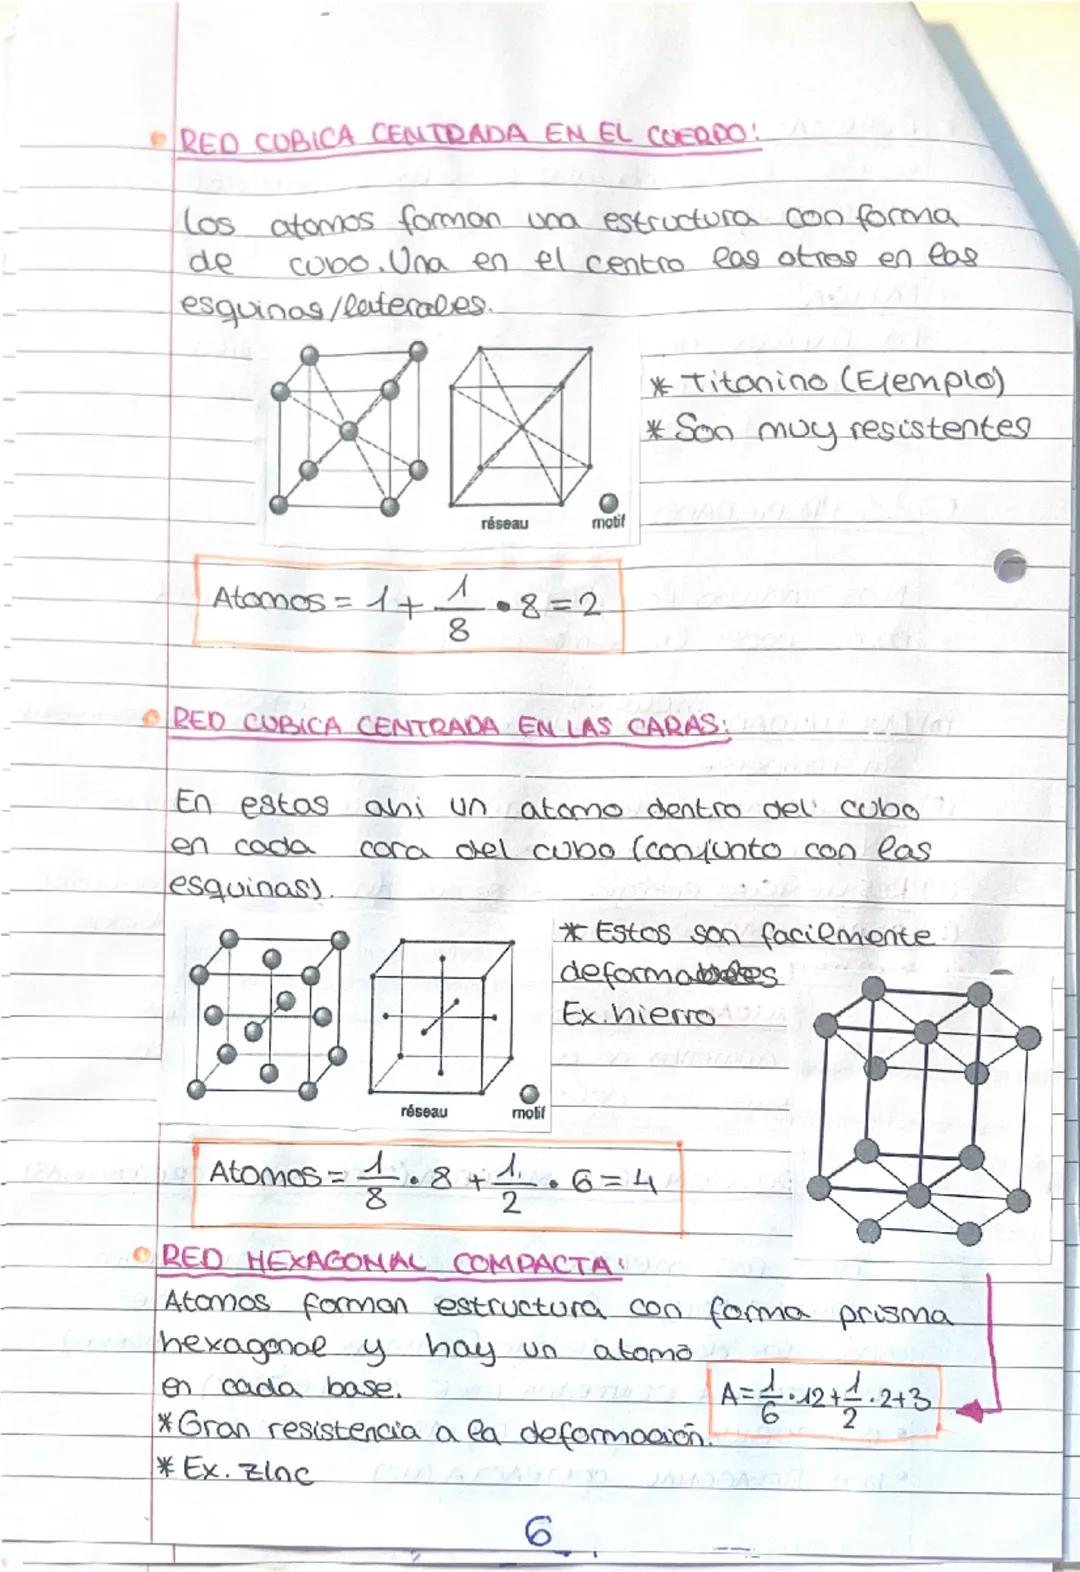 RED CUBICA CENTRADA EN EL CUERPO:
Los atomos forman una estructura con forma
de cubo. Una en el centro las otras en las
esquinas/laterales.
* Titanino (Ejemplo)
* Son muy resistentes
réseau motif
Atomos = 1 + 1/8 • 8 = 2
RED CUBICA CENTRADA EN LAS CARAS:
En estas ahi un atomo dentro del cubo
en cada cara del cubo (conjunto con las
esquinas).
* Estos son facilmente
deformables
Ex. hierro
réseau motif
Atomos = 1/8 • 8 + 1/2 • 6 = 4
RED HEXAGONAL COMPACTA:
Atomos forman estructura con forma prisma
hexagonal y hay un atomo
en cada base.
A = 1/6 • 12 + 1/2 • 2 + 3
* Gran resistencia a la deformación.
* Ex. zinc
6